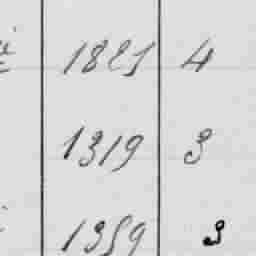 1821 4
1319 3
1359 3